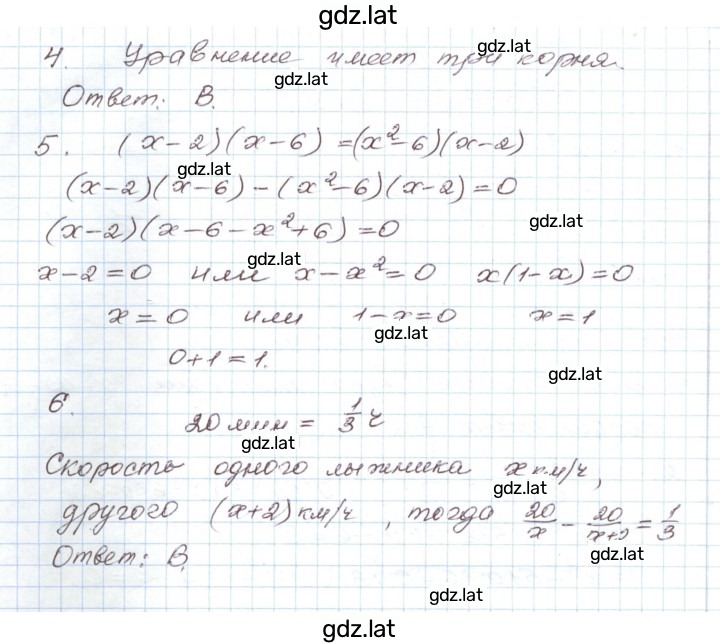 gdz.lat
4. Уравнение имеет три корня.
gdz.lat
gdz.lat
Ответ: В.
5. (x-2)(x-6)=(x²-6)(x-2)
gdz.lat
(x-2)(x-6)-(x²-6)(x-2)=0
(x-2)(x-6-x²+6)=0
gdz.lat
gdz.lat
x-2=0 или x-x²=0 x(1-x)=0
x=0 или 1-x=0 x=1
gdz.lat
0+1=1.
gdz.lat
6.
20 мин = 1/3 ч
gdz.lat
Скорость одного лыжника x км/ч,
gdz.lat
другого (x+2) км/ч, тогда 20/x - 20/(x+2) = 1/3
gdz.lat
Ответ: В.
gdz.lat
gdz.lat